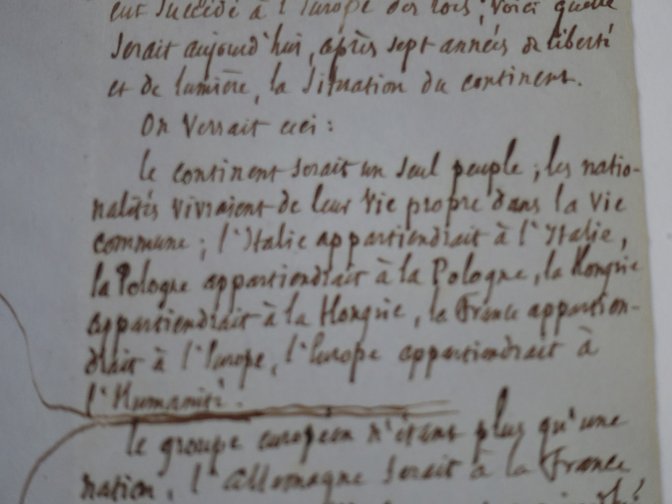 eut succédé à l'Europe des rois, voici quelle
serait aujourd'hui, après sept années de liberté
et de lumière, la situation du continent.
On verrait ceci :
Le continent serait un seul peuple ; les natio-
nalités vivraient de leur vie propre dans la vie
commune ; l'Italie appartiendrait à l'Italie,
la Pologne appartiendrait à la Pologne, la Hongrie
appartiendrait à la Hongrie, la France appartien-
drait à l'Europe, l'Europe appartiendrait à
l'Humanité.
Le groupe européen n'étant plus qu'une
nation, l'Allemagne serait à la France